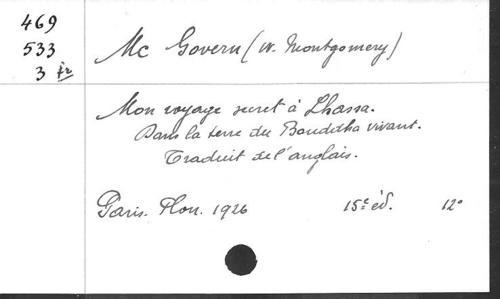 469
533
3 fr
Mc Govern (W. Montgomery)
Mon voyage secret à Lhassa.
Dans la terre du Bouddha vivant.
Traduit de l'anglais.
Paris. Plon. 1926 15e éd. 12°